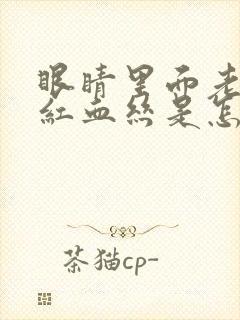 眼睛里面老
红血丝是怎
茶猫cp-